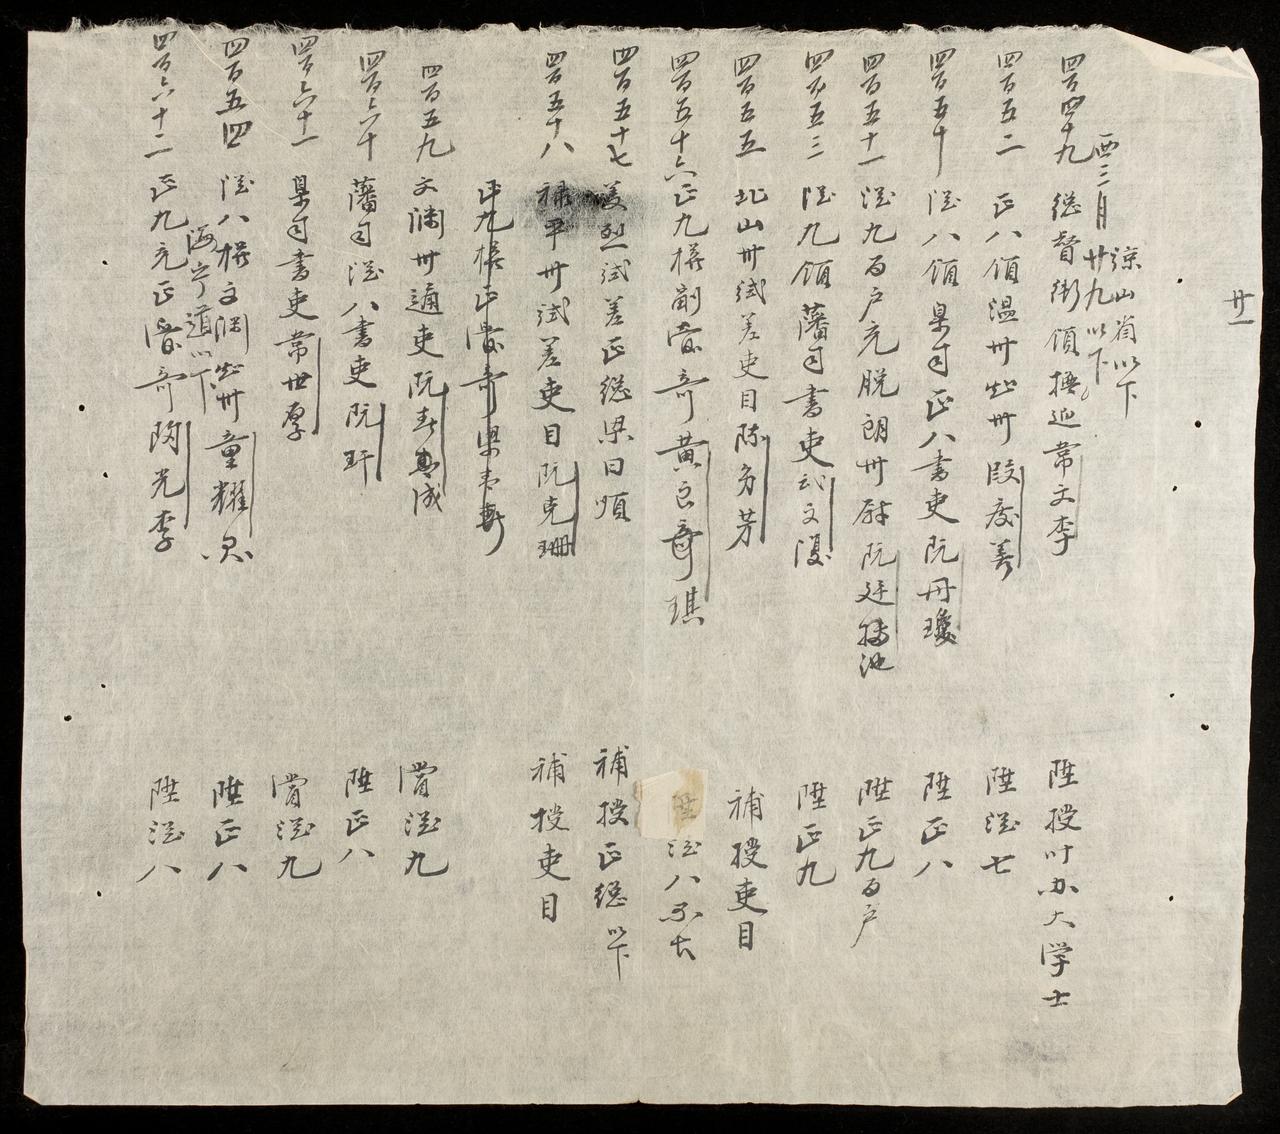 廿一
諒山省以下
酉三月廿九以下
四百四十九 総督衔領撫廵常文李 陞授叶办大学士
四百五二 正八領温卅知卅段度善 陞従七
四百五十 従八領臬司正八書吏阮丹瓊 陞正八
四百五十一 従九百户充脱朗卅尉阮廷池 陞正九百户
四百五三 従九領藩司書吏武文 陞正九
四百五五 北山卅試差吏目陈多芳 補授吏目
四百五十六 正九権副管奇黄良奇琪 陞従八
四百五十七 美烈試差正総梁曰 補授正総以下
四百五十八 禄平卅試差吏目阮克珊 補授吏目
正九権正管奇梁
四百五九 文淵卅通吏阮成 賞従九
四百六十 藩司従八書吏阮玕 陞正八
四百六十一 臬司書吏常世厚 賞従九
四百五四 従八権文渊知卅童耀 陞正八
海宁道以下
四百六十二 正九充正管奇陶光李 陞従八